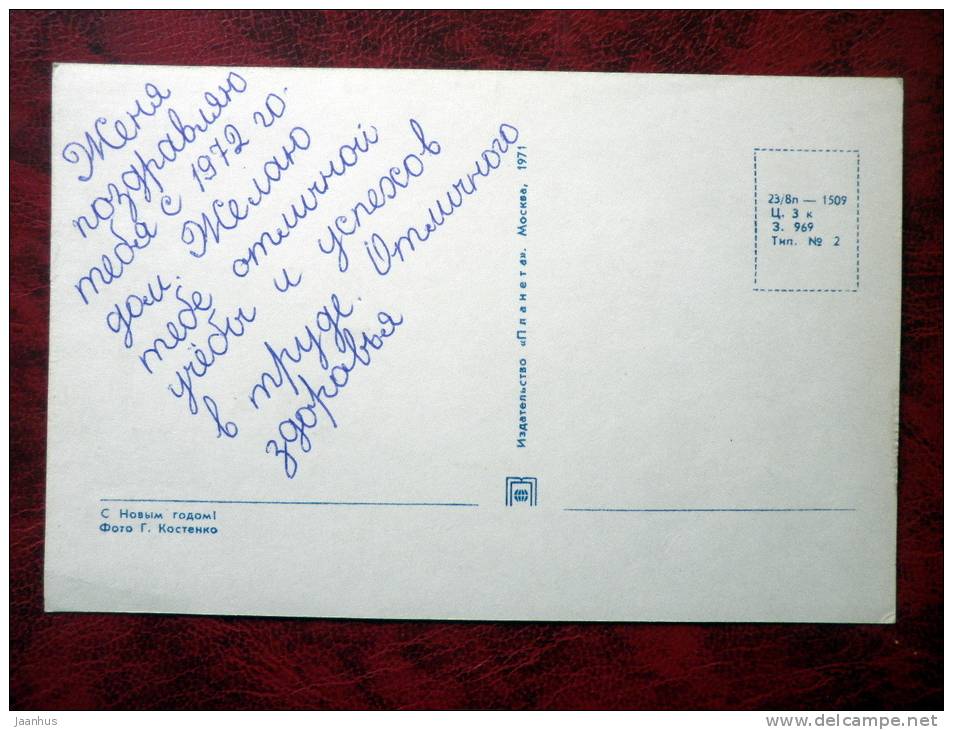 Женя
поздравляю
тебя с 1972 го-
дом. Желаю
тебе отличной
учёбы и успехов
в труде. Отличного
здоровья
Издательство «Планета». Москва, 1971
23/8п — 1509
Ц. 3 к
З. 969
Тип. № 2
С Новым годом!
Фото Г. Костенко
Jaanhus
www.delcampe.net